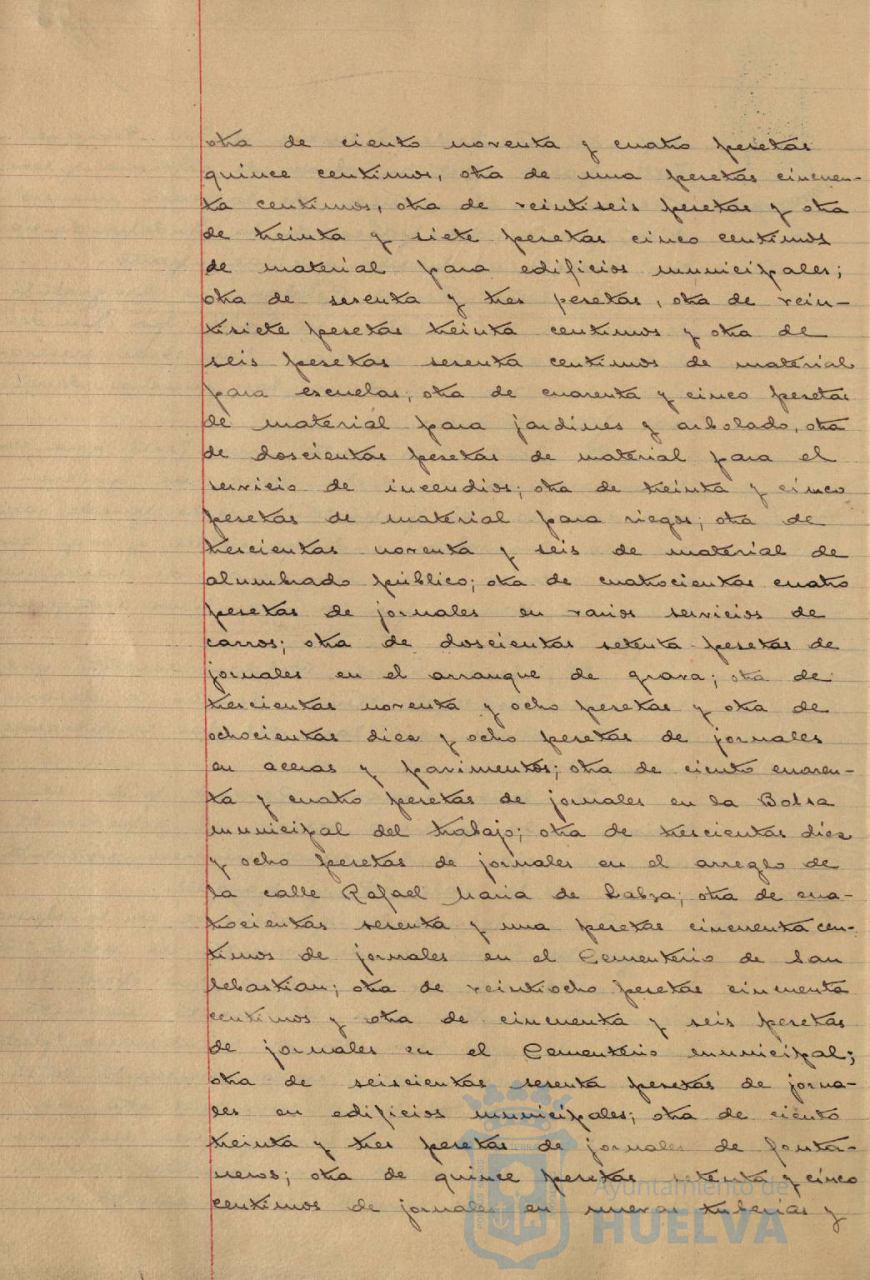 otra de ciento noventa y cuatro pesetas
quince centimos, otra de una pesetas cincuen-
ta centimos, otra de veintiseis pesetas y otra
de treinta y siete pesetas cinco centimos
de material para edificios municipales;
otra de sesenta y tres pesetas, otra de vein-
tisiete pesetas treinta centimos y otra de
seis pesetas sesenta centimos de material
para escuelas, otra de cuarenta y cinco pesetas
de material para jardines y arbolado, otra
de doscientas pesetas de material para el
servicio de incendios; otra de treinta y cinco
pesetas de material para riegos; otra de
trescientas noventa y seis de material de
alumbrado público; otra de cuatrocientas cuatro
pesetas de jornales en varios servicios de
carros; otra de doscientas setenta pesetas de
jornales en el arranque de grava; otra de
trescientas noventa y ocho pesetas y otra de
ochocientas diez y ocho pesetas de jornales
en aceras y pavimentos; otra de ciento cuaren-
ta y cuatro pesetas de jornales en la Bolsa
municipal del trabajo; otra de trescientas diez
y ocho pesetas de jornales en el arreglo de
la calle Rafael Maria de Labra; otra de cua-
trocientas sesenta y una pesetas cincuenta cen-
timos de jornales en el Cementerio de San
Sebastian; otra de veintiocho pesetas cincuenta
centimos y otra de cincuenta y seis pesetas
de jornales en el Cementerio municipal;
otra de seiscientas sesenta pesetas de jorna-
les en edificios municipales; otra de ciento
treinta y tres pesetas de jornales de fonta-
neros; otra de quince pesetas setenta y cinco
centimos de jornales en nuevas tuberias y
Ayuntamiento de
HUELVA